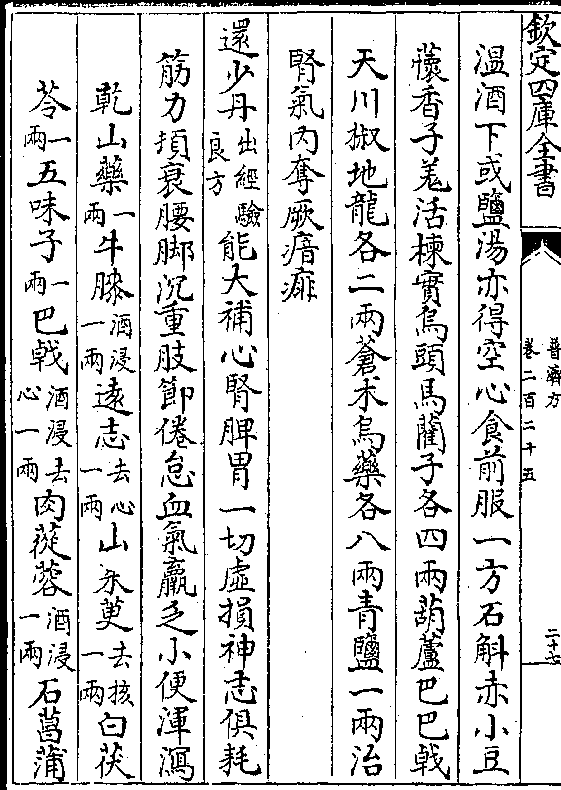 欽定四庫全書
普濟方
卷二百二十五
二十七
溫酒下或鹽湯亦得空心食前服一方石斛赤小豆
蘹香子羗活楝實烏頭馬藺子各四兩葫蘆巴巴戟
天川椒地龍各二兩蒼朮烏藥各八兩青鹽一兩治
腎氣内奪厥瘖痱
還少丹出經驗良方能大補心腎脾胃一切虛損神志俱耗
筋力頓衰腰脚沉重肢節倦怠血氣羸乏小便渾濁
乾山藥一兩牛膝酒浸一兩遠志去心一兩山茱萸去核一兩白茯
苓一兩五味子一兩巴戟酒浸去心一兩肉蓯蓉酒浸一兩石菖蒲